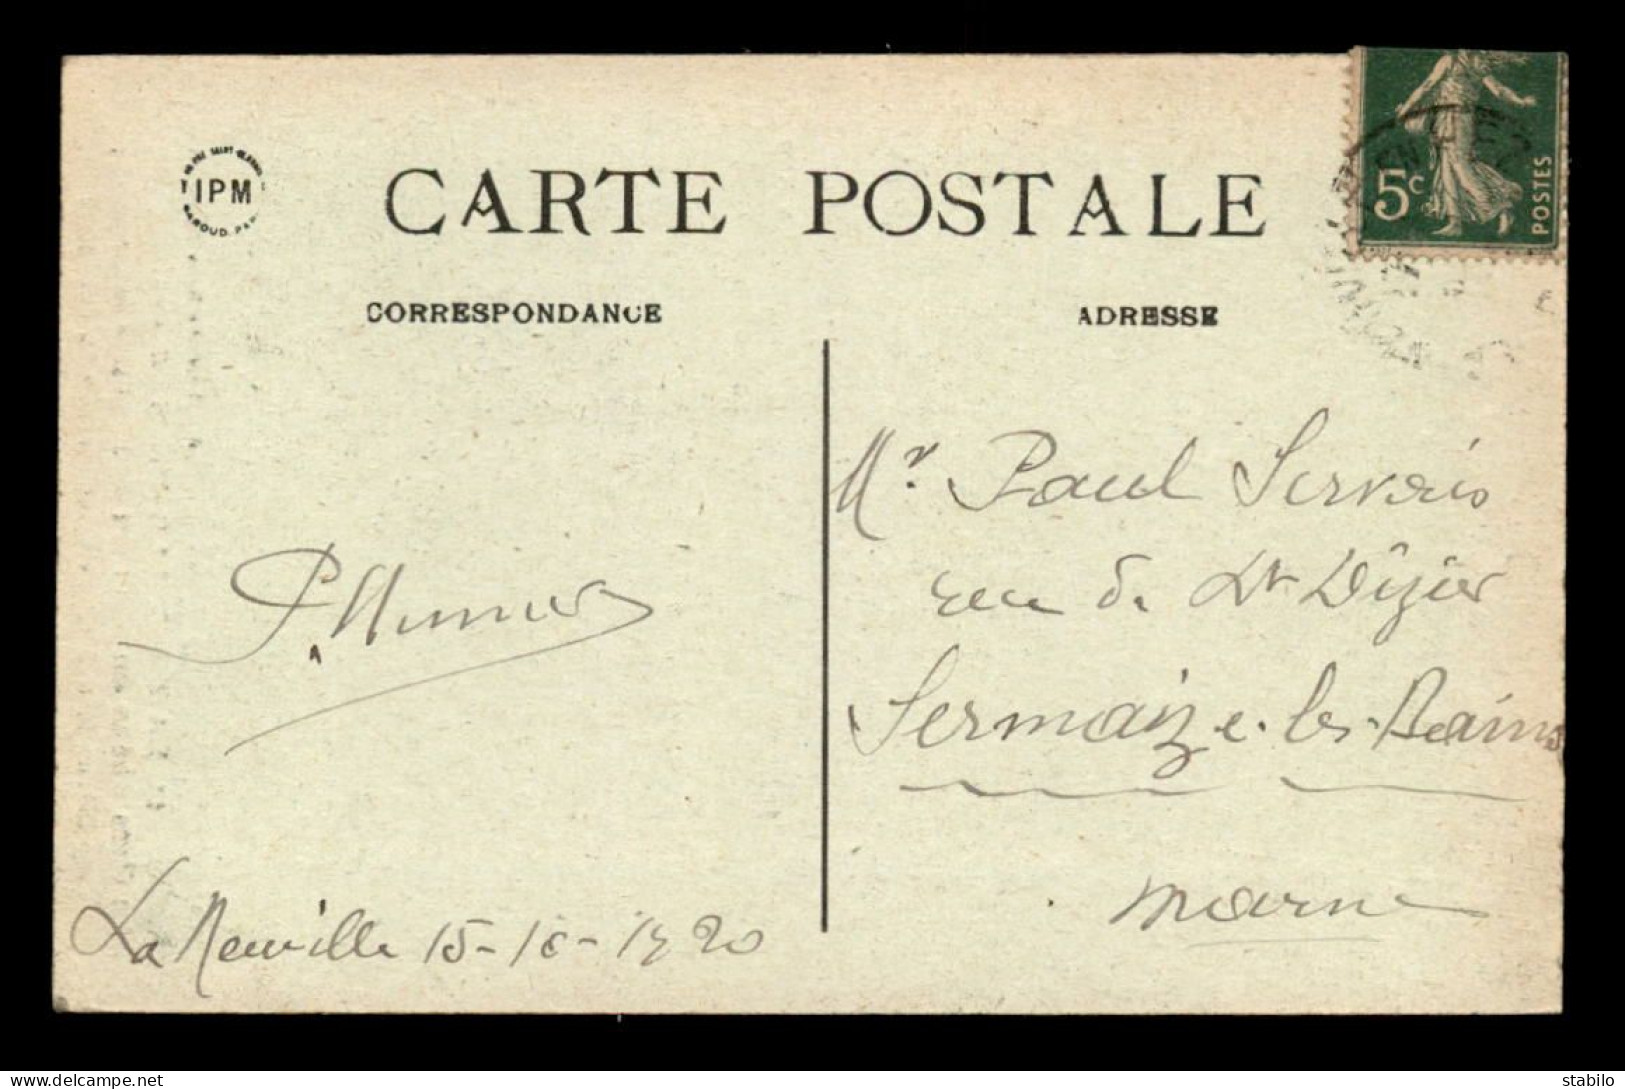 IPM
CARTE POSTALE
5c
POSTES
CORRESPONDANCE
ADRESSE
Mr Paul Servais
rue de St Dizier
Sermaize-les-Bains
Marne
La Neuville 15-10-1920
stabilo | delcampe.net